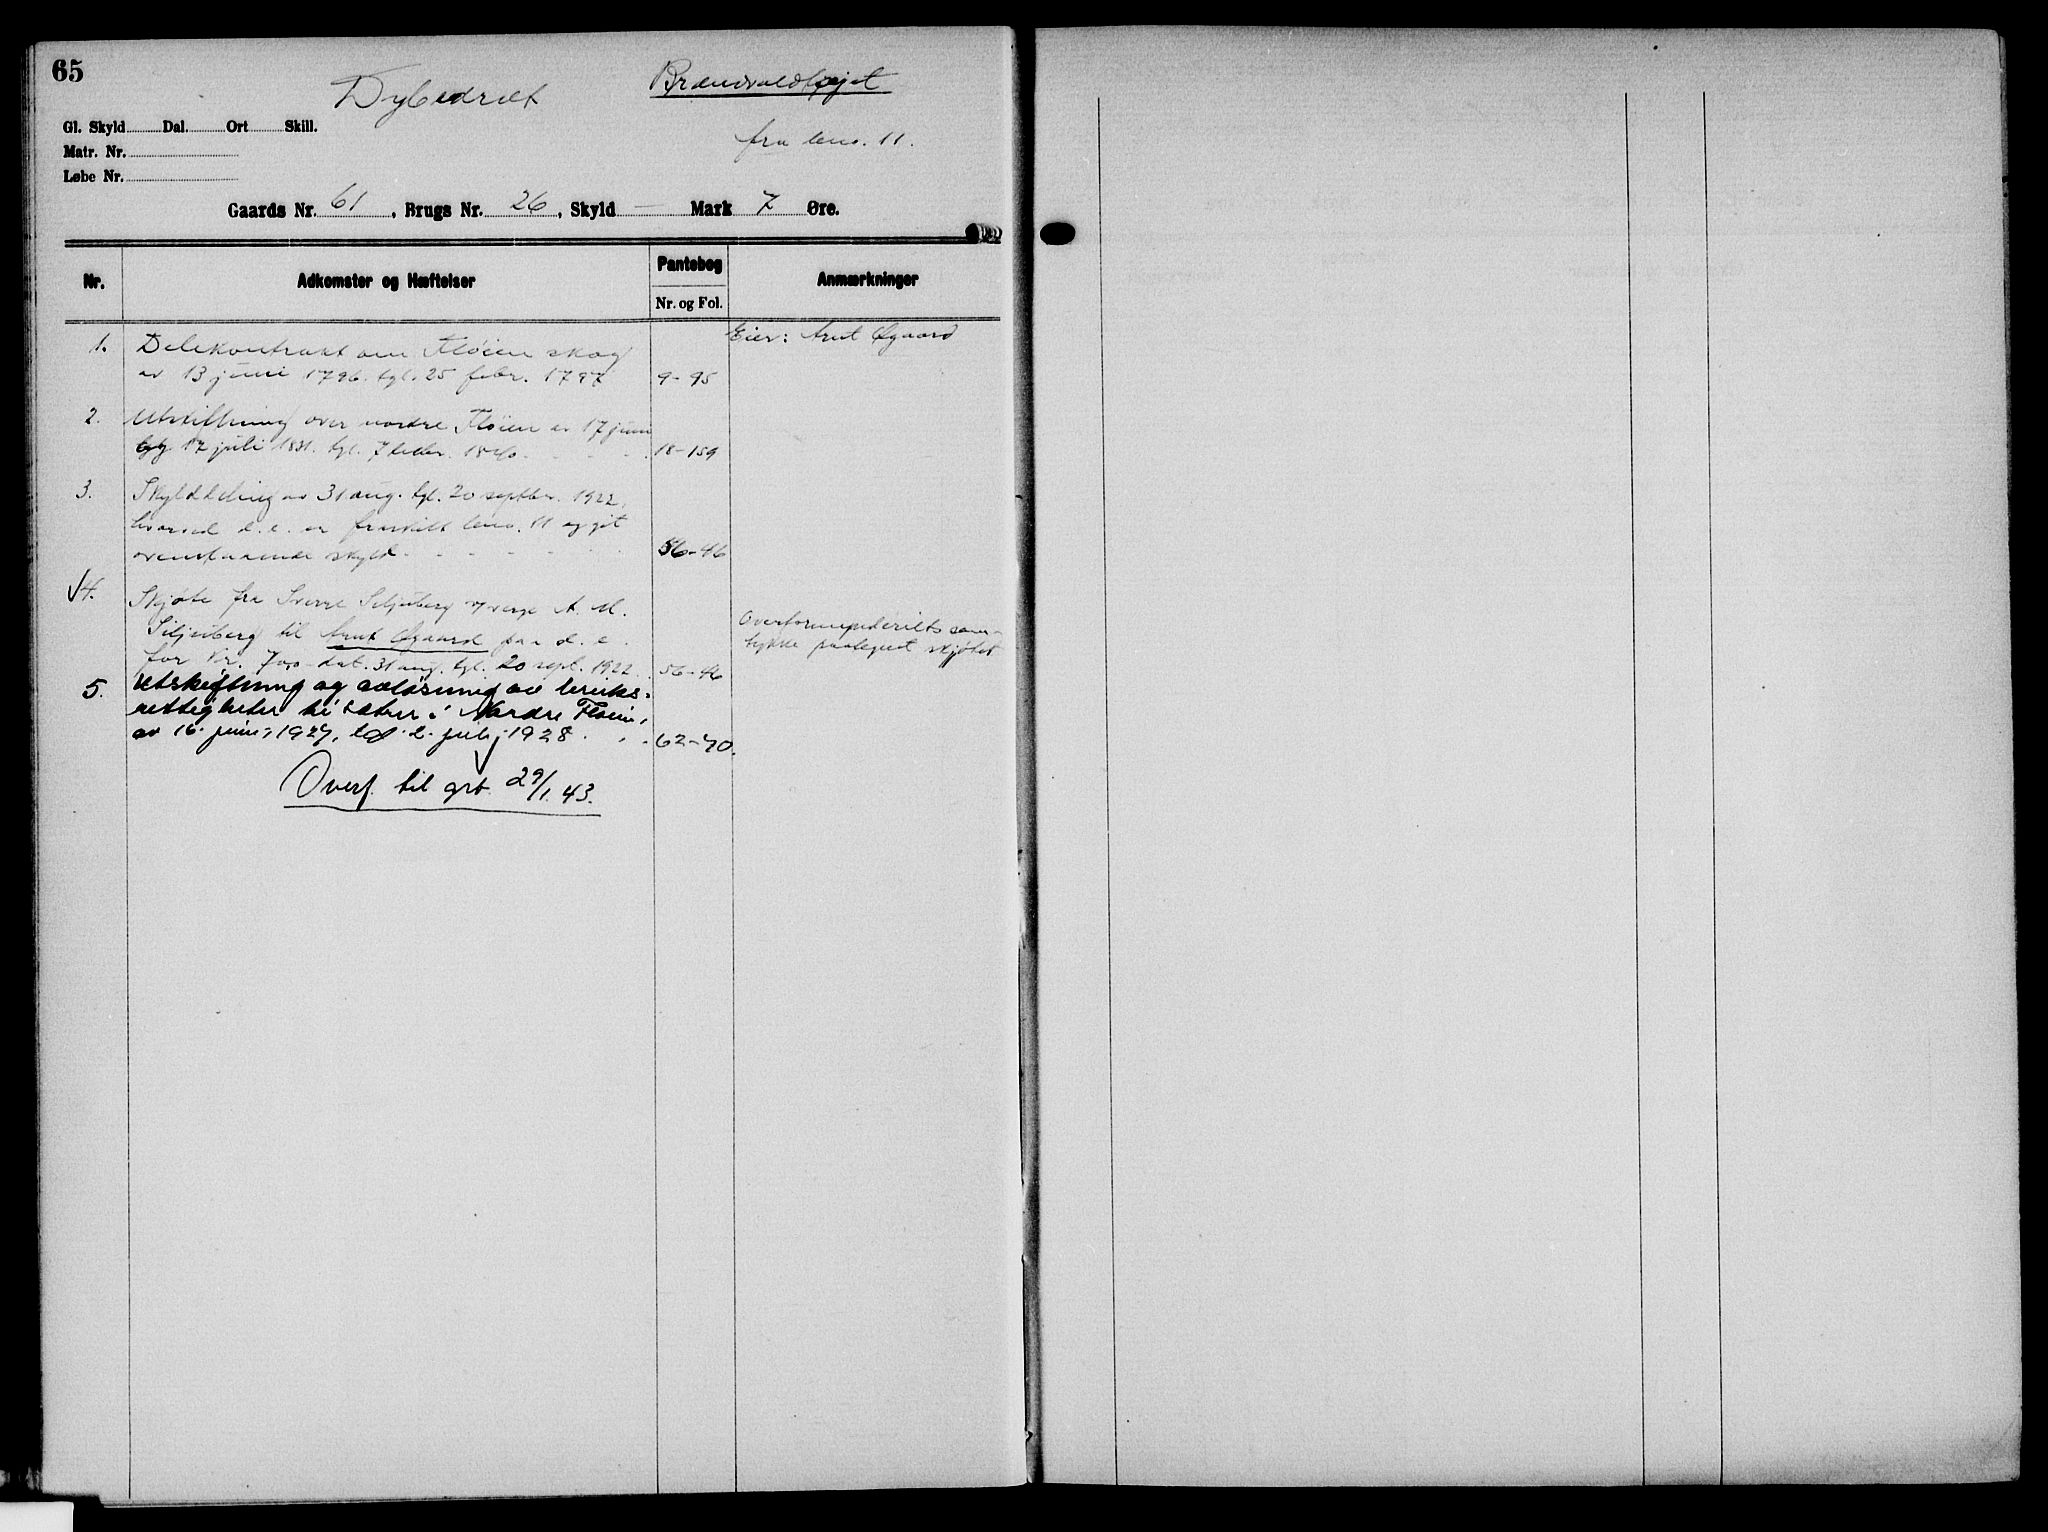 65
Dybedræt Brændvoldtøjet
fra bno. 11.
Gl. Skyld Dal. Ort Skill.
Matr. Nr.
Løbe Nr.
Gaards Nr. 61, Brugs Nr. 26, Skyld — Mark 7 Øre.
Nr. Adkomster og Hæftelser Pantebog Nr. og Fol. Anmærkninger
Eier: Arnt Øgaard
1. Delekontrakt om Fløien skog
av 13 juni 1796. tgl. 25 febr. 1797 9-95
2. Utskiftning over nordre Fløien av 17 juni
17 juli 1831. tgl. 7 1840. 18-159
3. Skylddeling av 31 aug. tgl. 20 septbr. 1922,
hvorved d. e. er fraskilt bno. 11 og git
ovenstaaende skyld 56-46
√4. Skjøte fra Sverre Siljuberg v/verge A. M.
Siljuberg til Arnt Øgaard paa d. e.
for kr. 700 - dat. 31 aug. tgl. 20 sept. 1922. 56-46
Overformynderiets sam-
tykke paategnet skjøtet
5. Utskiftning og avløsning av bruks-
rettigheter til sætrer i Nordre Fløien,
av 16. juni 1927, tgl. 2. juli 1928. 62-70.
Overf. til grb. 29/1.43.